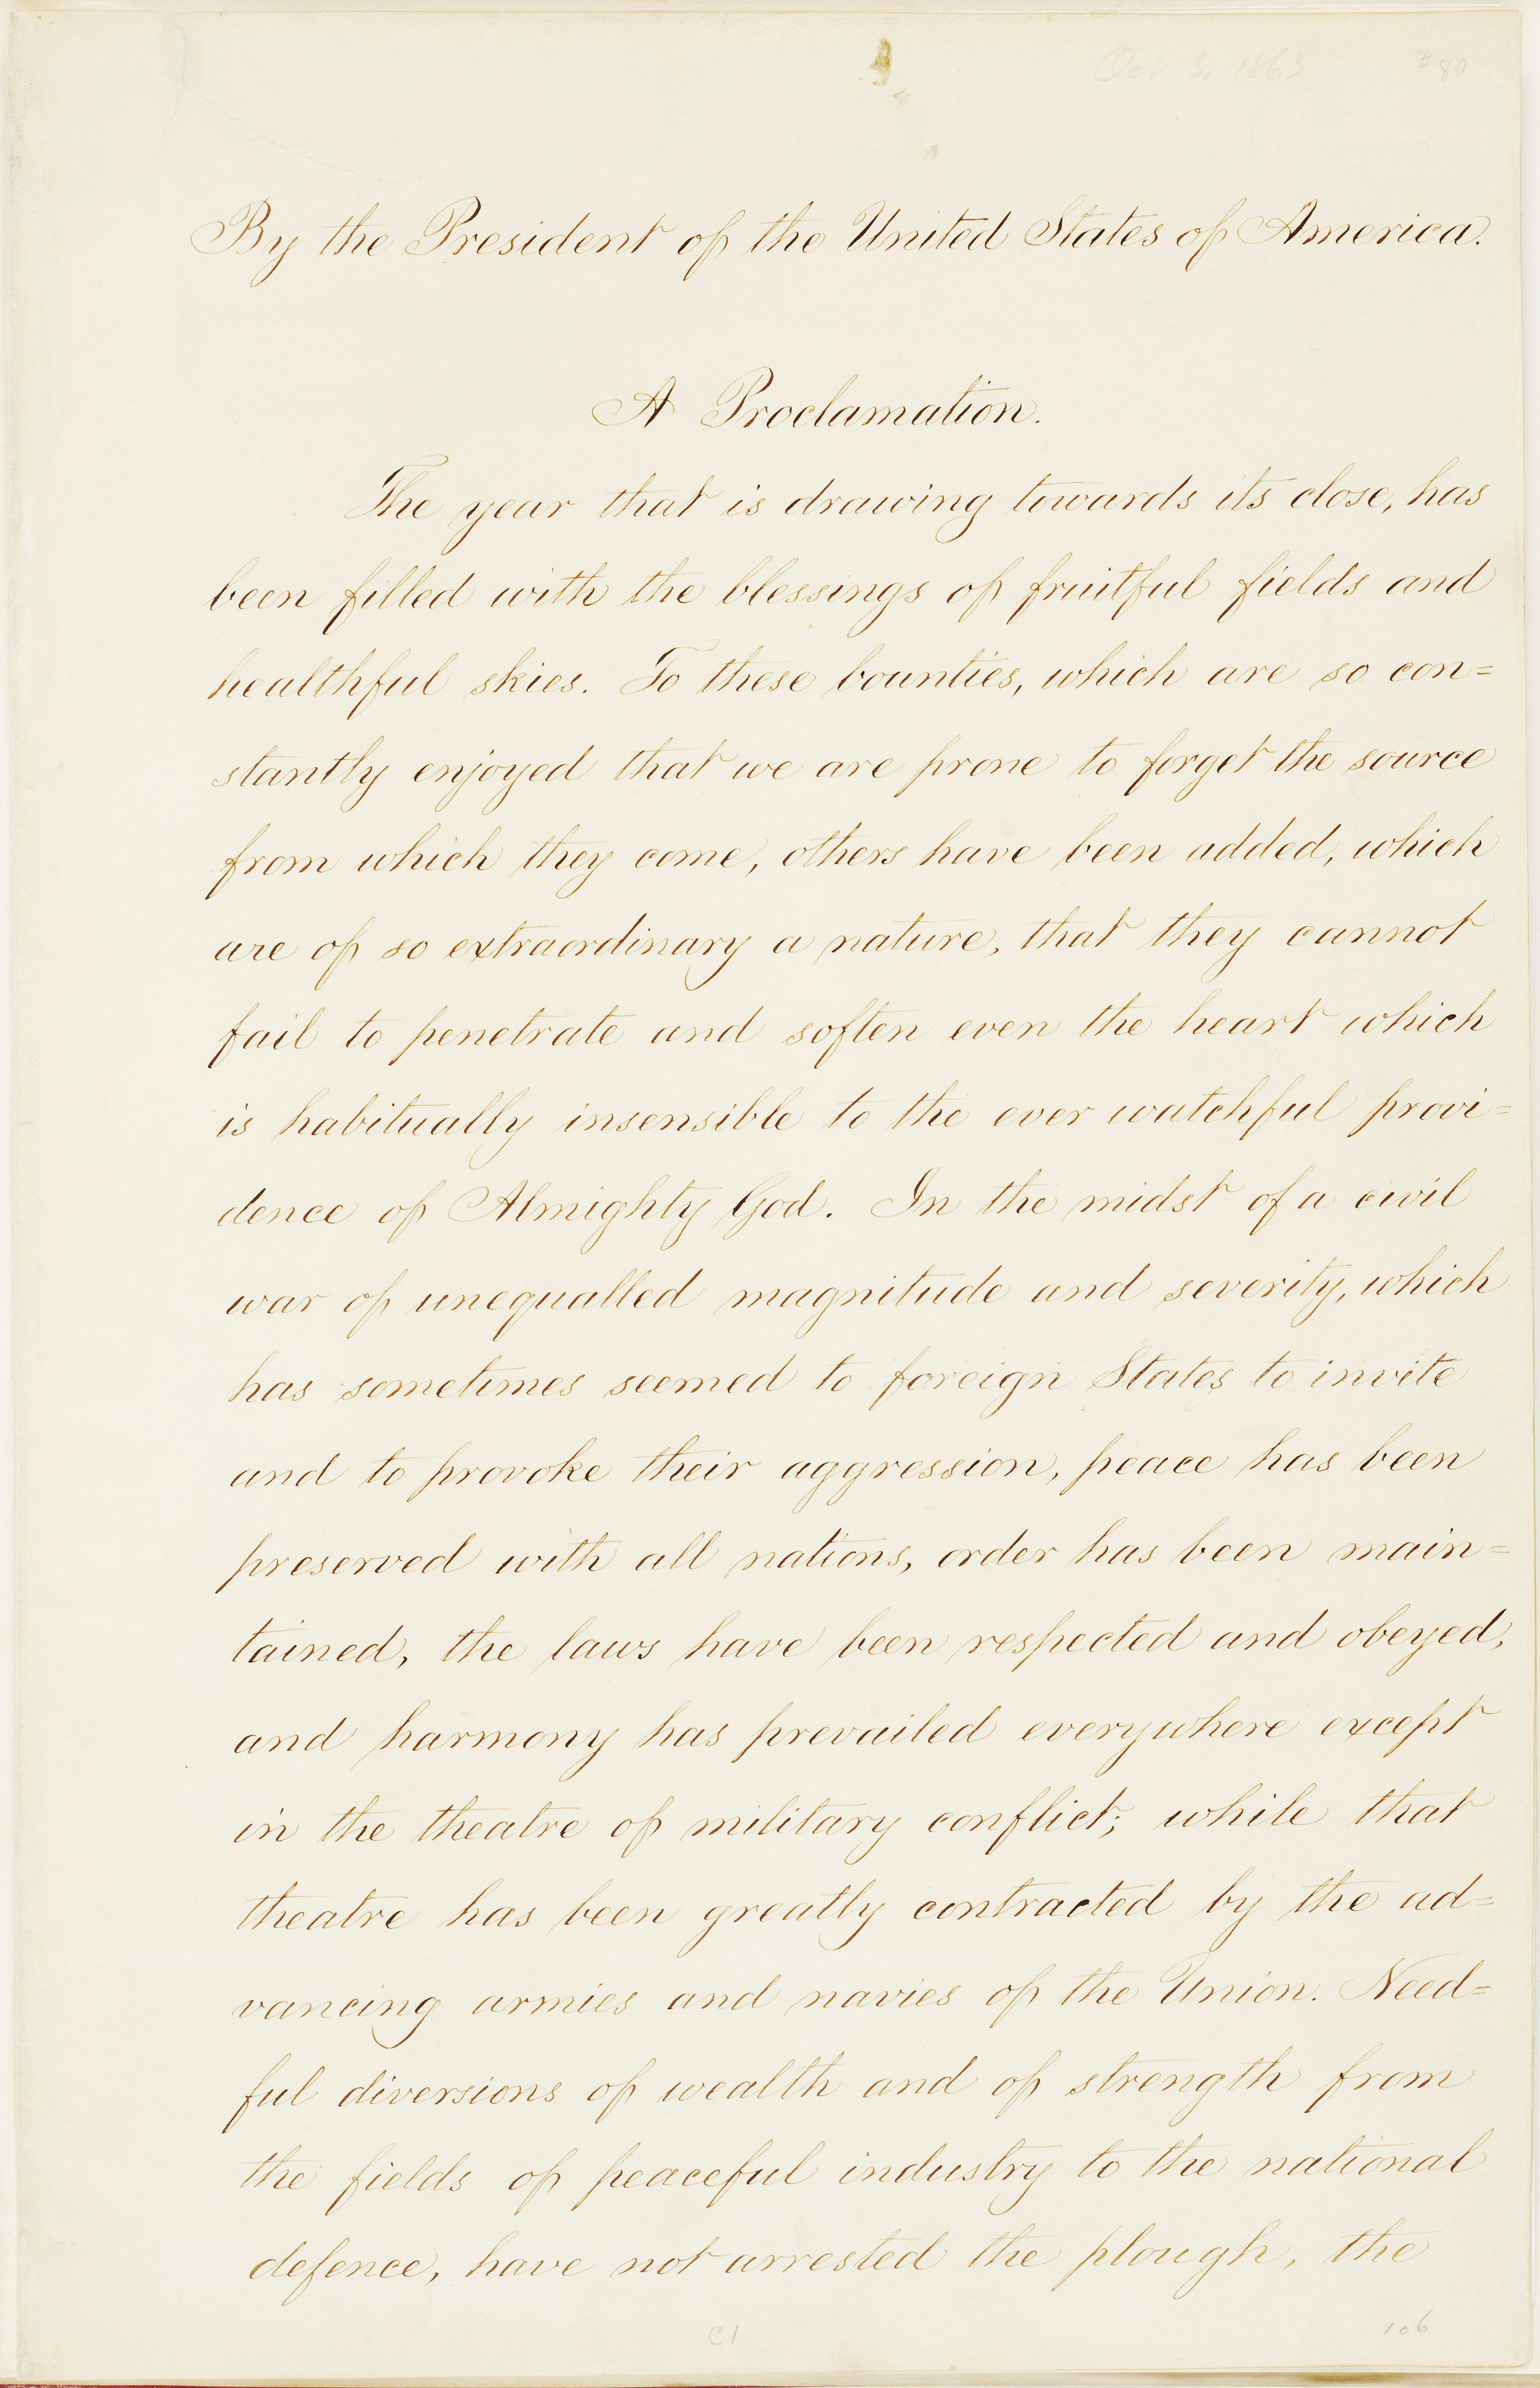 Oct 3, 1863 #80
By the President of the United States of America.
A Proclamation.
The year that is drawing towards its close, has
been filled with the blessings of fruitful fields and
healthful skies. To these bounties, which are so con=
stantly enjoyed that we are prone to forget the source
from which they come, others have been added, which
are of so extraordinary a nature, that they cannot
fail to penetrate and soften even the heart which
is habitually insensible to the ever watchful provi=
dence of Almighty God. In the midst of a civil
war of unequalled magnitude and severity, which
has sometimes seemed to foreign States to invite
and to provoke their aggression, peace has been
preserved with all nations, order has been main=
tained, the laws have been respected and obeyed,
and harmony has prevailed everywhere except
in the theatre of military conflict; while that
theatre has been greatly contracted by the ad=
vancing armies and navies of the Union. Need=
ful diversions of wealth and of strength from
the fields of peaceful industry to the national
defence, have not arrested the plough, the
C1 106